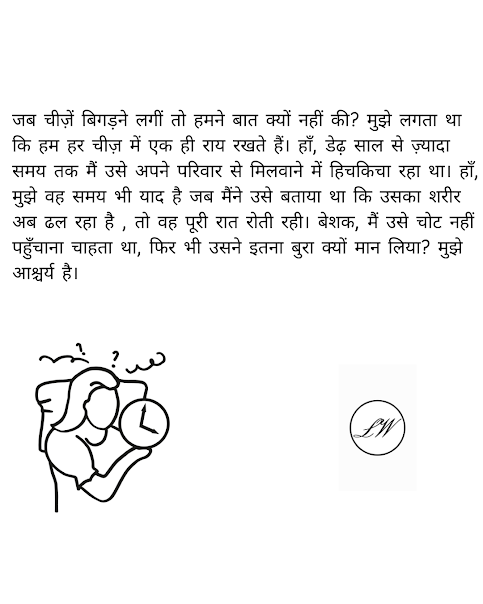 जब चीज़ें बिगड़ने लगीं तो हमने बात क्यों नहीं की? मुझे लगता था
कि हम हर चीज़ में एक ही राय रखते हैं। हाँ, डेढ़ साल से ज़्यादा
समय तक मैं उसे अपने परिवार से मिलवाने में हिचकिचा रहा था। हाँ,
मुझे वह समय भी याद है जब मैंने उसे बताया था कि उसका शरीर
अब ढल रहा है , तो वह पूरी रात रोती रही। बेशक, मैं उसे चोट नहीं
पहुँचाना चाहता था, फिर भी उसने इतना बुरा क्यों मान लिया? मुझे
आश्चर्य है।
? ?
LW